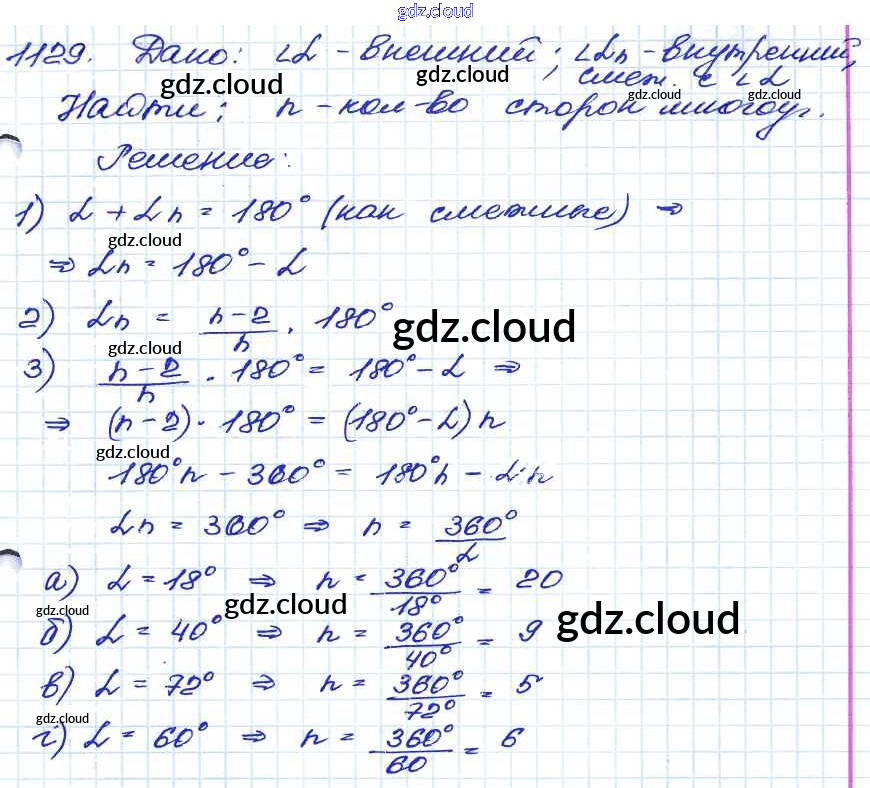 gdz.cloud
1129. Дано: ∠α - внешний; ∠αn - внутренний,
смеж. с ∠α
gdz.cloud gdz.cloud gdz.cloud gdz.cloud
Найти: n - кол-во сторон многоуг.
Решение:
1) α + αn = 180° (как смежные) ⇒
gdz.cloud
⇒ αn = 180° - α
2) αn = n-2/n · 180°
gdz.cloud
gdz.cloud
3) n-2/n · 180° = 180° - α ⇒
⇒ (n-2) · 180° = (180° - α) n
gdz.cloud
180°n - 360° = 180°n - α·n
αn = 360° ⇒ n = 360°/α
а) α = 18° ⇒ n = 360°/18° = 20
gdz.cloud gdz.cloud gdz.cloud
б) α = 40° ⇒ n = 360°/40° = 9
в) α = 72° ⇒ n = 360°/72° = 5
gdz.cloud
г) α = 60° ⇒ n = 360°/60 = 6